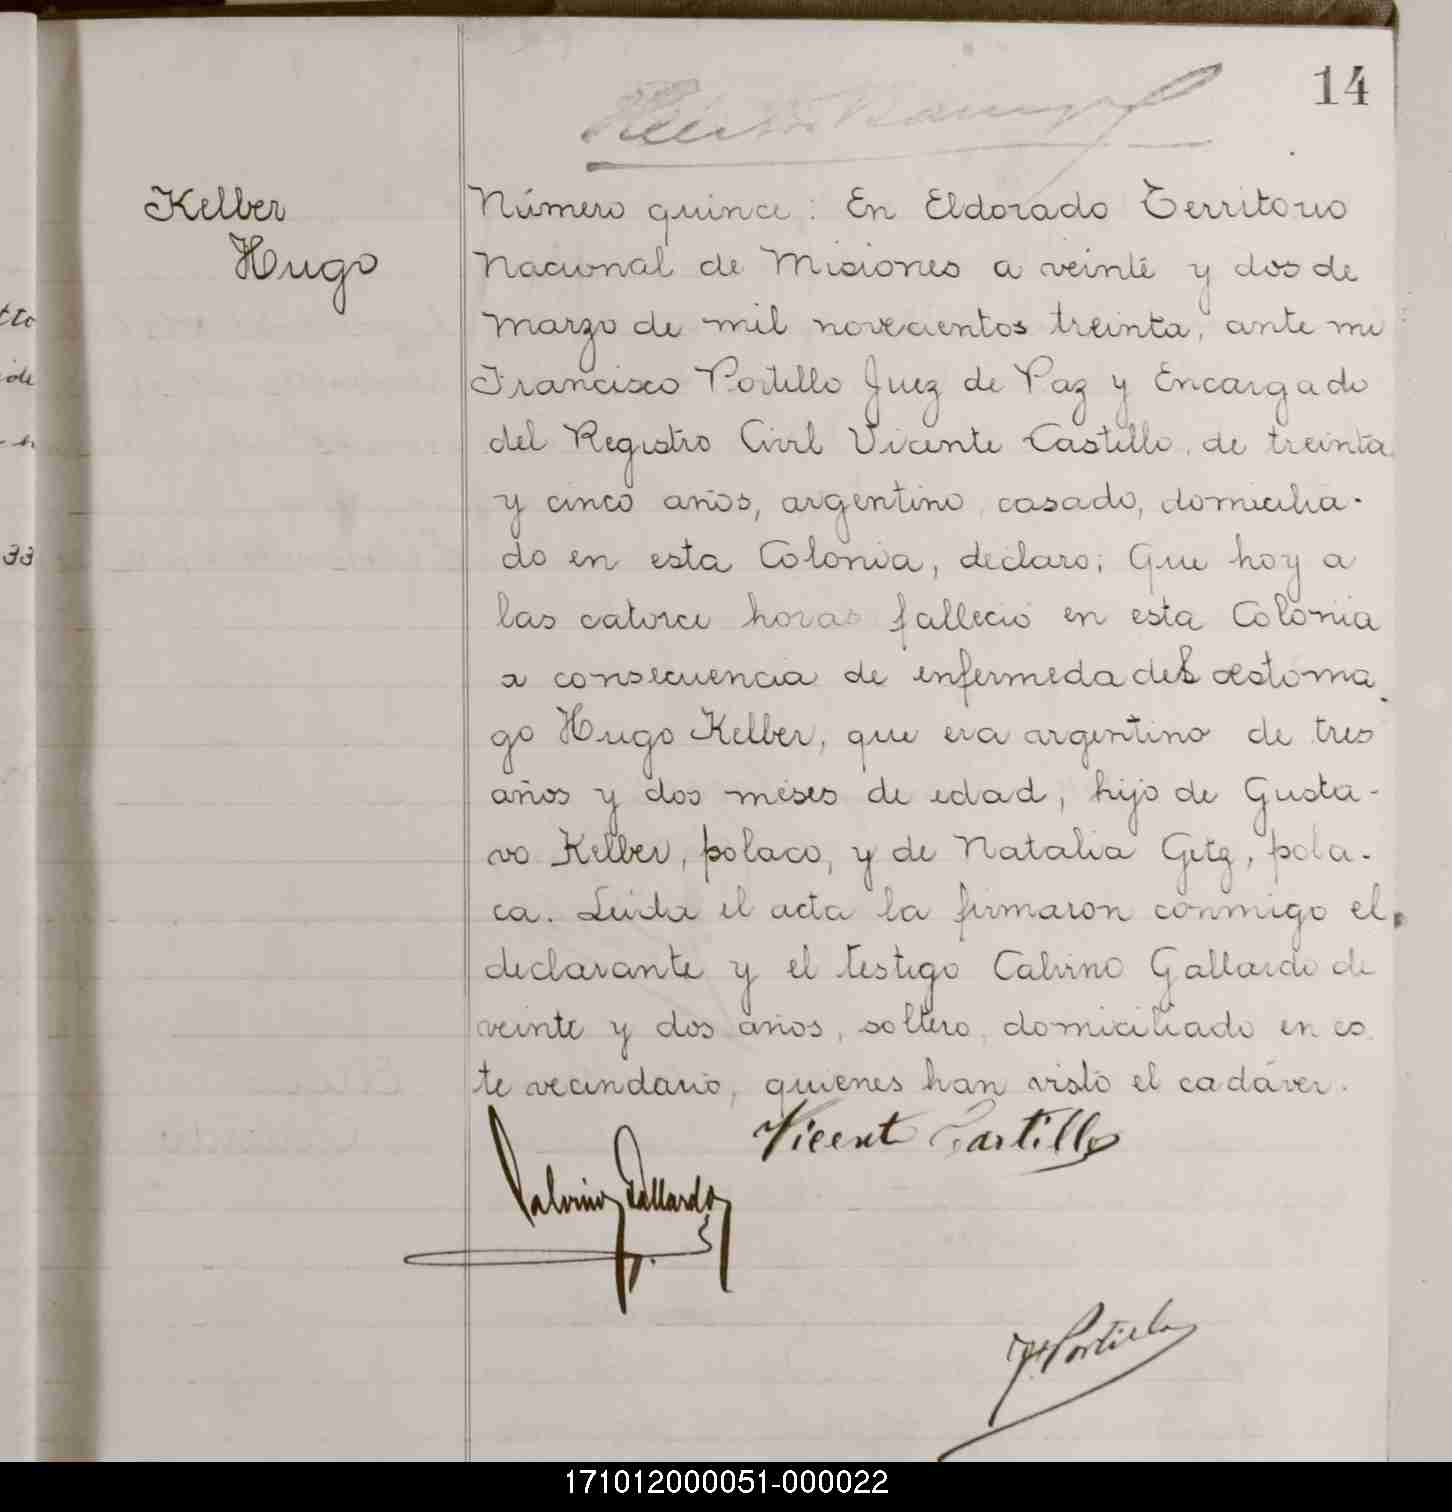 14
Kelber
Hugo
Número quince: En Eldorado Territorio
Nacional de Misiones a veinte y dos de
Marzo de mil novecientos treinta, ante mi
Francisco Portillo Juez de Paz y Encargado
del Registro Civil Vicente Castillo, de treinta
y cinco años, argentino, casado, domicilia-
do en esta Colonia, declaro; Que hoy a
las catorce horas fallecio en esta Colonia
a consecuencia de enfermeda del estoma
go Hugo Kelber, que era argentino de tres
años y dos meses de edad, hijo de Gusta-
vo Kelber, polaco, y de Natalia Getz, pola-
ca. Leida el acta la firmaron conmigo el
declarante y el testigo Calvino Gallardo de
veinte y dos años, soltero, domiciliado en es
te vecindario, quienes han visto el cadáver.
Vicente Castillo
Calvino Gallardo
F Portillo
tto
de
33
171012000051-000022